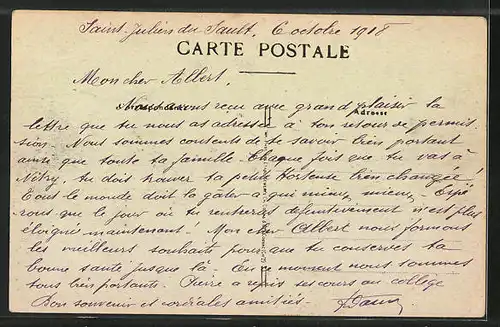 Saint-Julien du Sault, 6 octobre 1918
CARTE POSTALE
Mon cher Albert,
Nous avons reçu avec grand plaisir la
Adresse
lettre que tu nous as adressée à ton retour de permis-
sion. Nous sommes contents de te savoir très portant
ainsi que toute ta famille. Chaque fois que tu vas à
Nitry, tu dois trouver ta petite Hortense très changée!
Tout le monde doit la gâter à qui mieux mieux.
vous que le jour où tu rentreras définitivement n'est plus
éloigné maintenant! Mon cher Albert nous formons
les meilleurs souhaits pour que tu conserves ta
bonne santé jusque là. En ce moment nous sommes
tous très portants. Pierre a repris ses cours au collège
Bon souvenir et cordiales amitiés.